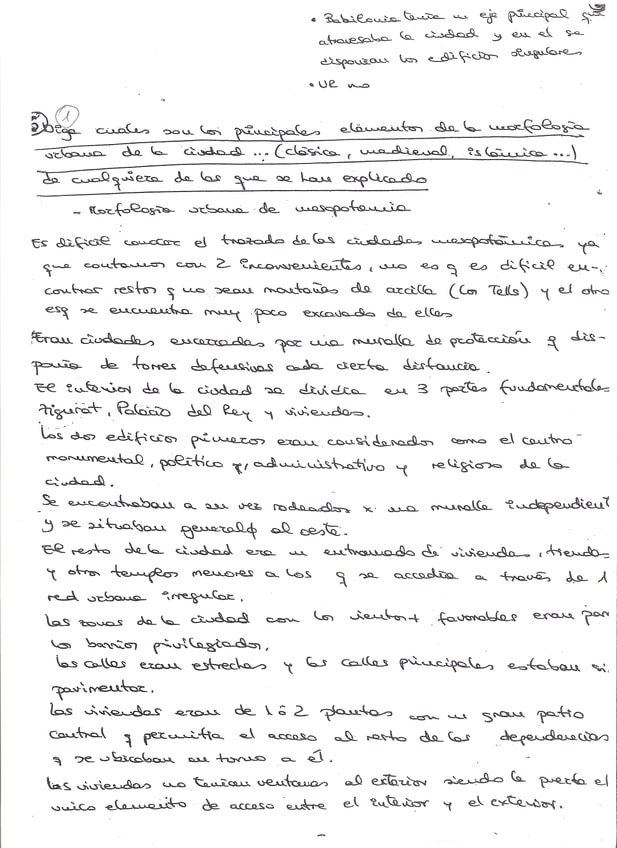 • Babilonia tenía un eje principal que
atravesaba la ciudad y en el se
disponían los edificios singulares
• Ur no
1
Diga cuales son los principales elementos de la morfología
urbana de la ciudad ... (clásica, medieval, islámica ...)
de cualquiera de las que se han explicado
- Morfología urbana de mesopotamia
Es difícil conocer el trazado de las ciudades mesopotámicas ya
que contamos con 2 inconvenientes, uno es q es difícil en-
contrar restos q no sean montañas de arcilla (los Tells) y el otro
es q se encuentra muy poco excavado de ellos
Eran ciudades encerradas por una muralla de protección q dis-
ponía de torres defensivas cada cierta distancia.
El interior de la ciudad se dividía en 3 partes fundamentales
Zigurat, Palacio del Rey y viviendas.
Los dos edificios primeros eran considerados como el centro
monumental, político y, administrativo y religioso de la
ciudad.
Se encontraban a su vez rodeados x una muralla independient
y se situaban general al oeste.
El resto de la ciudad era un entramado de viviendas, tiendas
y otros templos menores a los q se accedía a través de 1
red urbana irregular.
Las zonas de la ciudad con los vientos + favorables eran par
los barrios privilegiados.
Las calles eran estrechas y las calles principales estaban si
pavimentar.
Las viviendas eran de 1 ó 2 plantas con un gran patio
central q permitía el acceso al resto de las dependencias
q se ubicaban en torno a él.
Las viviendas no tenían ventanas al exterior siendo la puerta el
unico elemento de acceso entre el interior y el exterior.